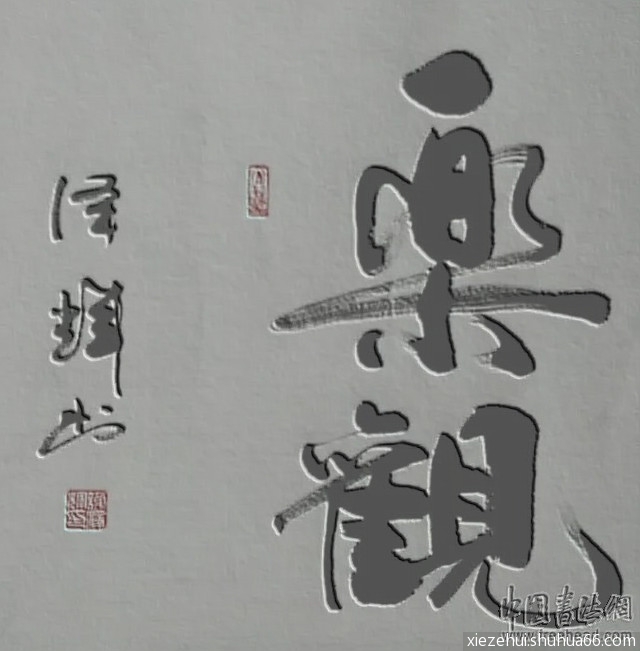 樂觀
泽輝书
中国書法網
xiezehui.shuhua66.com